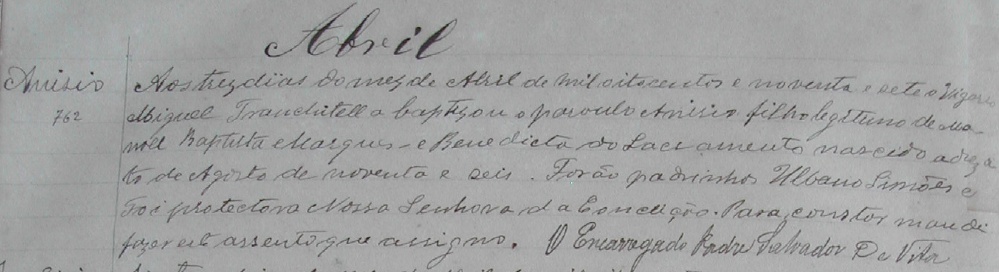 Abril
Anisio
762
Aos trez dias do mez de Abril de mil oitocentos e noventa e sete o Vigario
Miguel Tranchitella baptizou o parvulo Anisio filho legitimo de Ma-
noel Baptista Marques e Benedicta do Sacramento nascido a deze
de Agosto de noventa e seis. Forão padrinhos Ulbano Simões e
Foi protectora Nossa Senhora da Conceição. Para constar mandi
fazer este assento que assigno. O Encarregado Padre Salvador De Vita